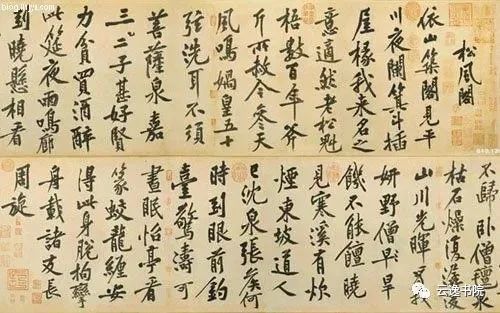 松風閣
依山築閣見平
川夜闌箕斗插
屋椽我来名之
意適然老松魁
梧數百年斧
斤所赦今参天
風鳴媧皇五十
弦洗耳不須
菩薩泉嘉
三二子甚好賢
力貧買酒醉
此筵夜雨鳴廊
到曉懸相看
不歸卧僧氊泉
枯石燥復潺湲
山川光暉為我
妍野僧早旱
饑不能饘曉
見寒溪有炊
煙東坡道人
已沈泉張侯何
時到眼前釣
臺驚濤可
晝眠怡亭看
篆蛟龍纏安
得此身脱拘攣
舟載諸友長
周旋
云逸书院